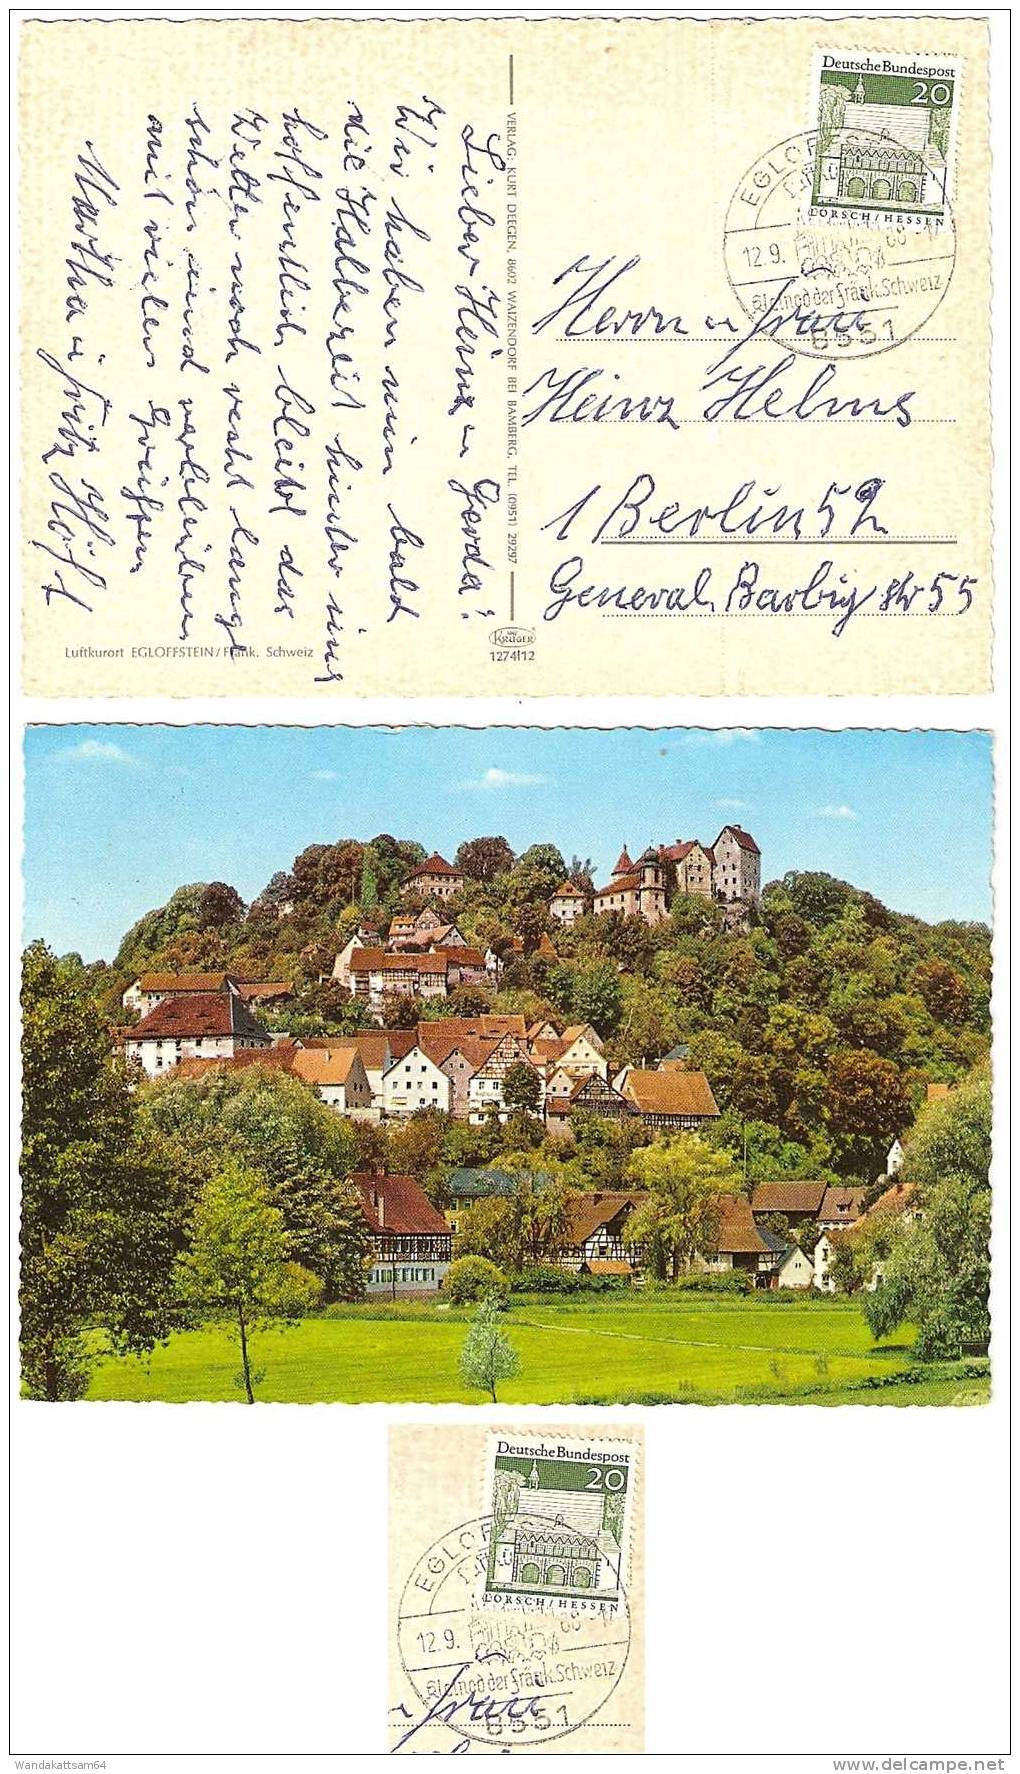 Deutsche Bundespost
20
LORSCH/HESSEN
EGLOFF
12.9. 68
Kleinod der Fränk. Schweiz
8551
Lieber Heinz u Gerda!
Wir haben nun bald
die Halbzeit hinter uns
hoffentlich bleibt das
Wetter noch recht lange
schön sind verbleiben
mit vielen Grüßen
Martha u Fritz
VERLAG: KURT DEEGEN, 8602 WAIZENDORF BEI BAMBERG, TEL. (0951) 29297
KRÜGER
1274/12
Herrn u Frau
Heinz Helms
1 Berlin 52
General Barbig str 55
Luftkurort EGLOFFSTEIN/Fränk. Schweiz
Deutsche Bundespost
20
LORSCH/HESSEN
EGLOFF
12.9. 68
Kleinod der Fränk. Schweiz
u Frau
8551
Wandakattsam64
www.delcampe.net